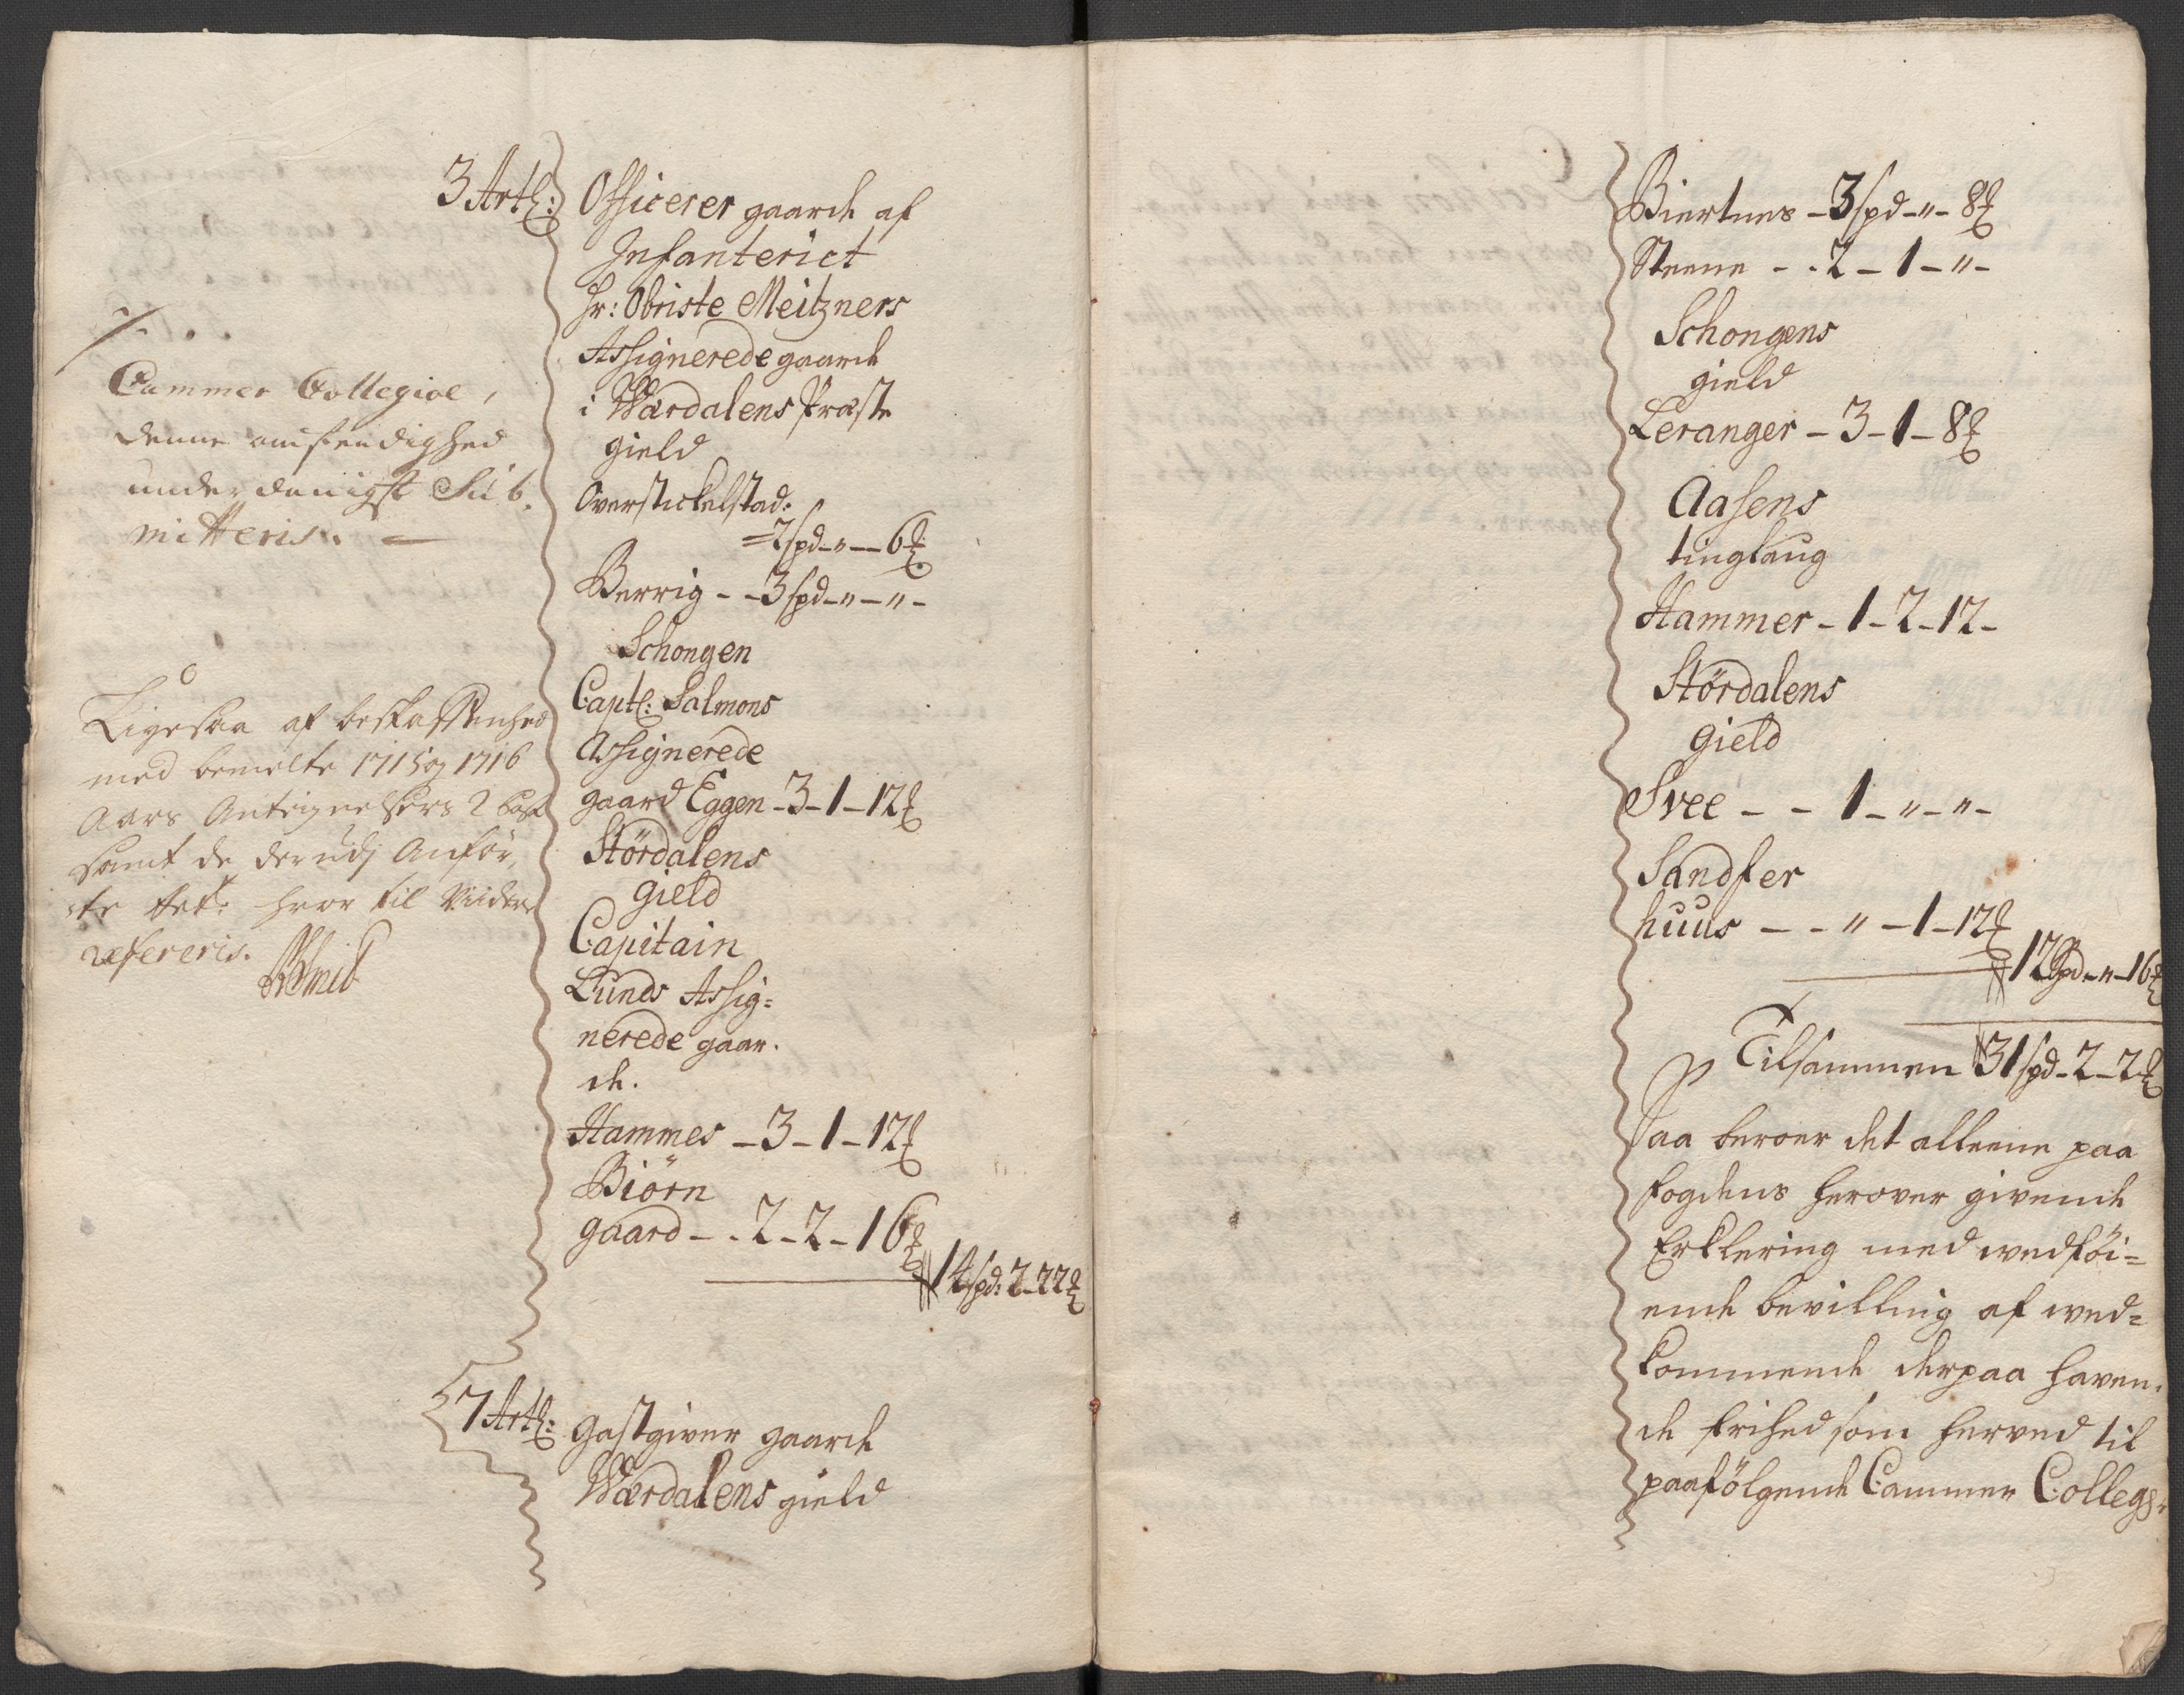 Cammer Collegiæ,
denne omstendighed
underdanigst Sub-
mitteris.
Ligesaa af beskaffenhed
med bemelte 1715 og 1716
Aars Antegnelsers 2 Post
samt de derudj Anfør,
te hvor til Viidere
refereris.
3 Artl: Officerer gaarde af
Infanteriet
Hr: Obriste Meitzners
Assignerede gaarde
i Wærdalens Præste
gield
Overstickelstad:
=2 spd - " - 6 ℔
Berrig - - 3 spd - " - " -
Schongen
Captl: Salmons
Assignerede
gaard Eggen - 3 - 1 - 12 ℔
Stördalens
gield
Capitain
Lunds Assig=
nerede gaar-
de.
Hammes - 3 - 1 - 12 ℔
Biörn
gaard - . 2 - 2 - 16 ℔
14 spd: 2 - 22 ℔
7 Artl: Gastgiver gaarde
Wærdalens gield
Biertnes - 3 spd - " - 8 ℔
Steene - . 2 - 1 - " -
Schongens
gield
Leranger - 3 - 1 - 8 ℔
Aasens
tinglaug
Hammer - 1 - 2 - 12 -
Stördalens
gield
Svee - - 1 - " - " -
Sandfer
huus - - " - 1 - 12 ℔
12 spd - " - 16 ℔
Tilsammen 31 spd - 2 - 2 ℔
Saa beroer det alleene paa
fogdens herover givende
Erklering med wedföi=
ende bevilling af wed=
kommende derpaa haven-
de frihed som herved til
paafölgende Cammer Collegs.